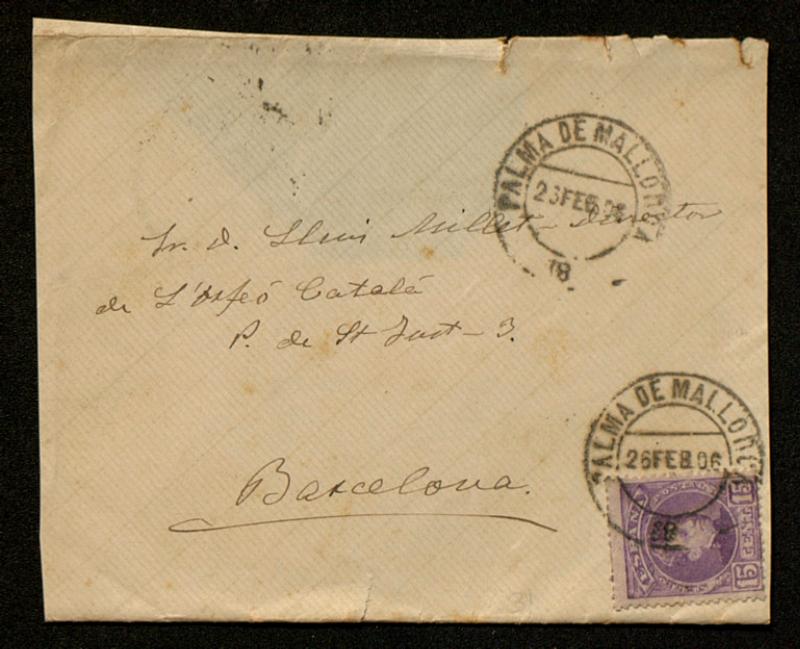 PALMA DE MALLORCA
26FEB.06
18
Sr. D. Lluis Millet - Director
de L'Orfeó Catalá
P. de St Just - 3.
Barcelona.
PALMA DE MALLORCA
26FEB.06
18
ESPAÑA
15 CENT. 15